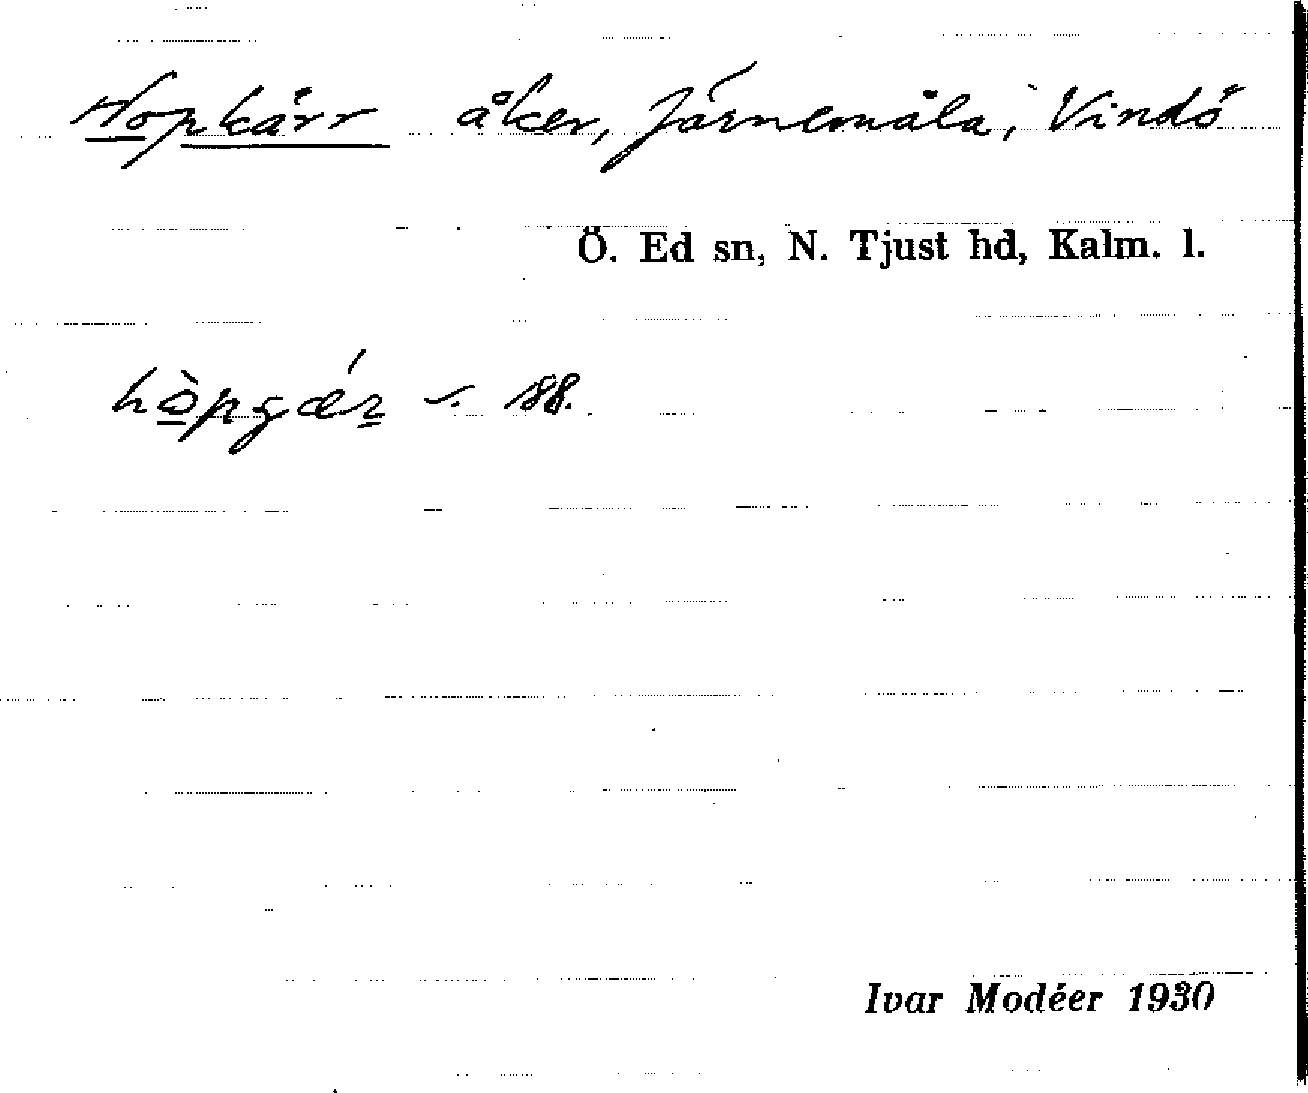 Hopkärr åker, Järnemåla, Vindö
Ö. Ed sn, N. Tjust hd, Kalm. l.
hòpgǽr 188.
Ivar Modéer 1930